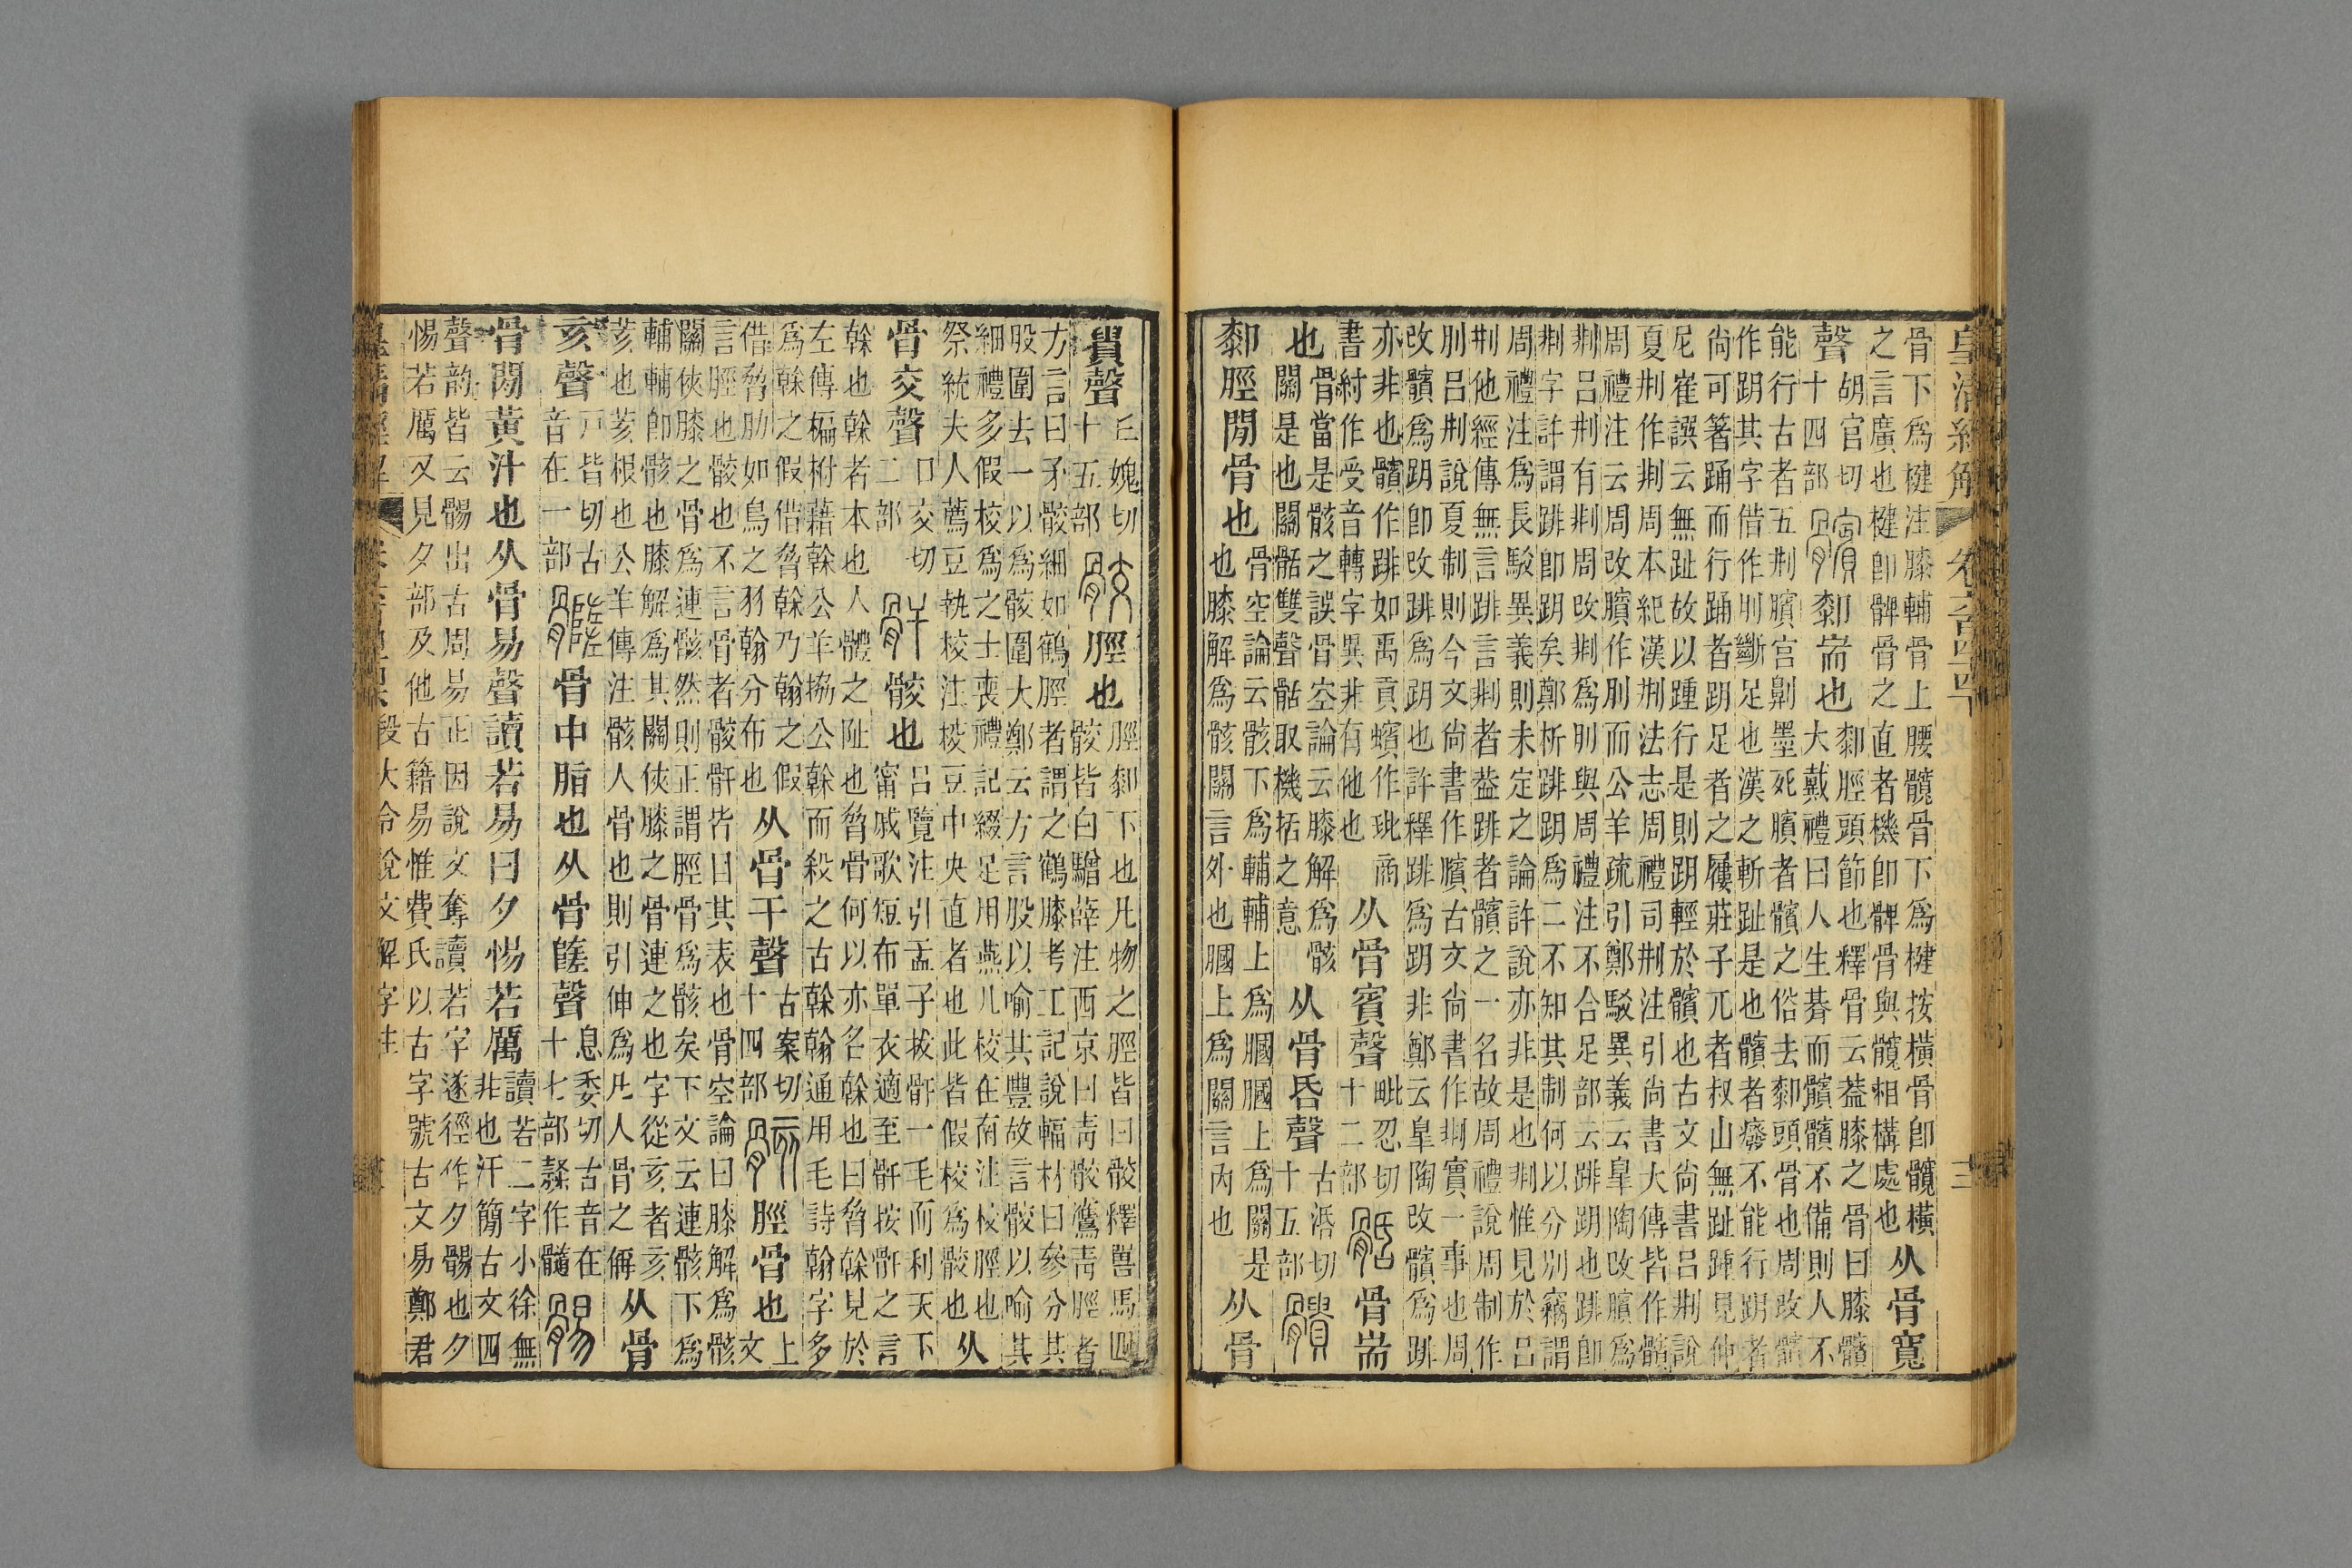 皇清經解 卷六百四十四 三
骨下爲楗注膝輔骨上腰髖骨下爲楗按橫骨即髖橫
之言廣也楗即髀骨之直者機即髀骨與髖相構處也
从骨寬
聲
胡官切
十四部
厀耑也
厀脛頭節也釋骨云葢膝之骨曰膝髕
大戴禮曰人生朞而髕髕不備則人不
能行古者五荆臏宮劓墨死臏者髕之俗去厀頭骨也周改髕
作跀其字借作刖斷足也漢之斬趾是也髕者癈不能行跀者
尚可箸踊而行踊者跀足者之屨莊子兀者叔山無趾踵見仲
尼崔譔云無趾故以踵行是則跀輕於髕也古文尚書呂荆說
夏荆作荆周本紀漢荆法志周禮司荆注引尚書大傳皆作髕
周禮注云周改臏作刖而公羊疏引鄭駮異義云皐陶改臏爲
剕呂荆有剕周改剕爲刖與周禮注不合足部云跳跀也跳即
剕字許謂跳即跀矣鄭析跳跀爲二不知其制何以分别竊謂
周禮注爲長駮異義則未定之論許說亦非是也剕惟見於呂
荆他經傳無言跳言剕者葢跳者髕之一名故周禮說周制作
刖呂荆說夏制則今文尚書作臏古文尚書作剕實一事也周
改髕爲跀即改跳爲跀也許釋跳爲跀非鄭云皐陶改髕爲跳
亦非也髕作跳如禹貢蠙作玭商
書紂作受音轉字異非有他也
从骨賓聲
毗忍切
十二部
骨耑
也
骨當是骸之誤骨空論云膝解爲骸
關是也關骺雙聲骺取機括之意
从骨昏聲
古活切
十五部
厀脛閒骨也
骨空論云骸下爲輔輔上爲膕膕上爲關是
也膝解爲骸關言外也膕上爲關言內也
从骨
貴聲
丘媿切
十五部
脛也
脛厀下也凡物之脛皆曰骹釋嘼馬四
骹皆白驓薛注西京曰靑骹鷹靑脛者
方言曰矛骹細如鶴脛者謂之鶴膝考工記說輻材曰參分其
股圍去一以爲骹圍大鄭云方言股以喻其豐故言骹以喻其
細禮多假校爲之士喪禮記綴足用燕几校在南注校脛也
祭統夫人薦豆執校注校豆中央直者也此皆假校爲骹也
从
骨交聲
口交切
二部
骸也
呂覽注引孟子拔骭一毛而利天下
甯戚歌短布單衣適至骭按骭之言
榦也榦者本也人體之阯也胷骨何以亦名榦也曰胷榦見於
左傳楄柎藉榦公羊拹公榦而殺之古榦翰通用毛詩翰字多
爲榦之假借胷榦乃翰之假
借胷肋如鳥之羽翰分布也
从骨干聲
古案切
十四部
脛骨也
上文
言脛也骹也不言骨者骸骭皆曰其表也骨空論曰膝解爲骸
關俠膝之骨爲連骸然則正謂脛骨爲骸矣下文云連骸下爲
輔輔卽骸也膝解爲其關俠膝之骨連之也字從亥者亥
荄也荄根也公羊傳注骸人骨也則引伸爲凡人骨之偁
从骨
亥聲
戸皆切古
音在一部
骨中脂也从骨隓聲
息委切古音在
十七部䰂作髓
骨閒黃汁也从骨易聲讀若易曰夕惕若厲
讀若二字小徐無
非也汗簡古文四
聲韵皆云䯜出古周易正因說文奪讀若字遂徑作夕䯜也夕
惕若厲又見夕部及他古籍易惟費氏以古字號古文易鄭君
皇清經解 段大令說文解字注